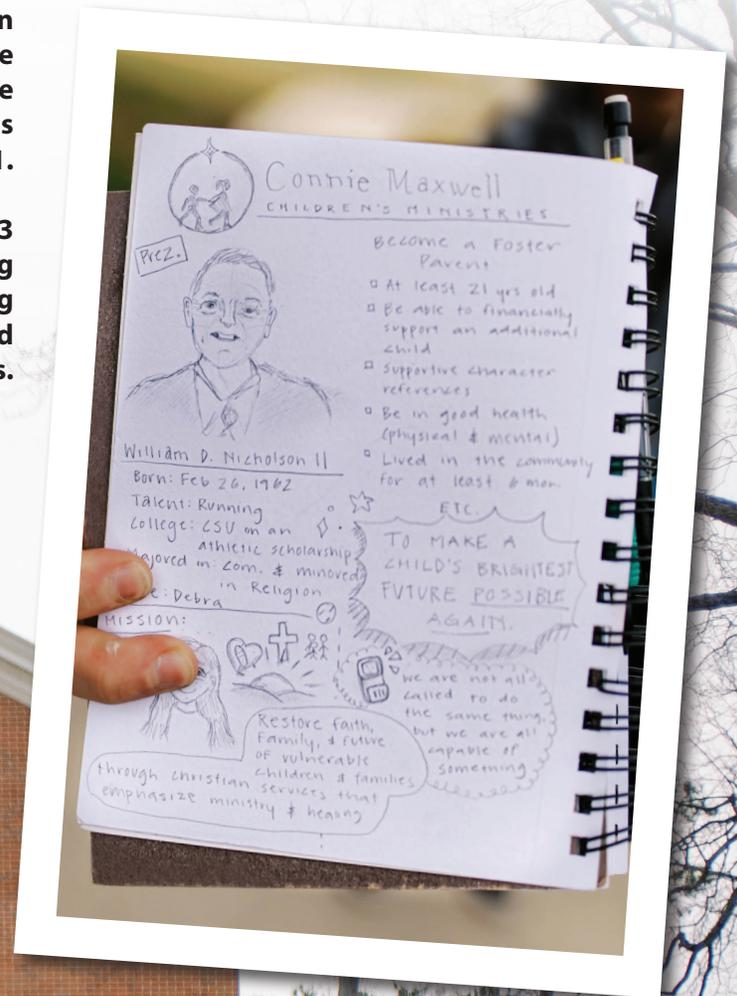 n
e
e
s
l.
3
g
g
d
s.
Connie Maxwell
CHILDREN'S MINISTRIES
Prez.
William D. Nicholson II
Born: Feb 26, 1962
Talent: Running
College: CSU on an
athletic scholarship
Majored in: Com. & minored
in Religion
e: Debra
MISSION:
Restore faith,
family, & future
of vulnerable
children & families
through christian services that
emphasize ministry & healing
Become a Foster
Parent
At least 21 yrs old
Be able to financially
support an additional
child
Supportive character
references
Be in good health
(physical & mental)
Lived in the community
for at least 6 mon.
ETC.
TO MAKE A
CHILD'S BRIGHTEST
FUTURE POSSIBLE
AGAIN.
we are not all
called to do
the same thing,
but we are all
capable of
something